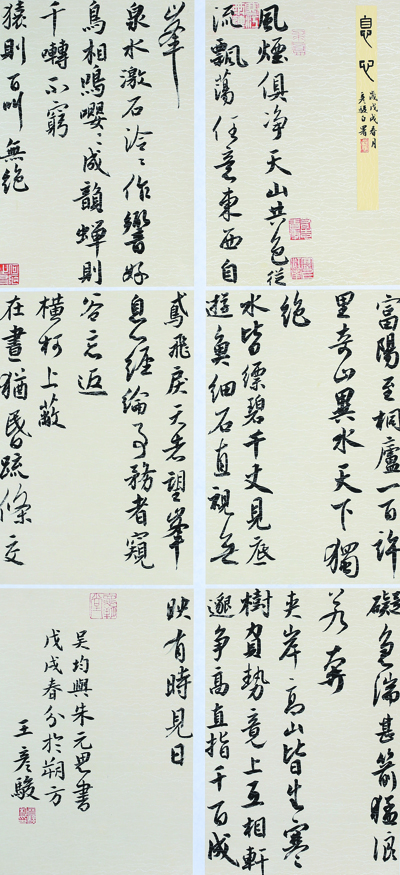 息心
歲戊戌春月
彥駿自署
風煙俱净天山共色從
流飄蕩任意東西自
富陽至桐廬一百許
里奇山異水天下獨
绝
水皆縹碧千丈見底
遊魚細石直視無
礙急湍甚箭猛浪
若奔
夾岸高山皆生寒
樹負勢競上互相軒
邈争高直指千百成
峯
泉水激石泠泠作響好
鳥相鳴嚶嚶成韻蟬則
千囀不窮
猿則百叫無绝
鳶飛戾天者望峯
息心經綸事務者窺
谷忘返
橫柯上蔽
在晝猶昏疏條交
映有時見日
吴均與朱元思書
戊戌春分於朔方
王彥駿